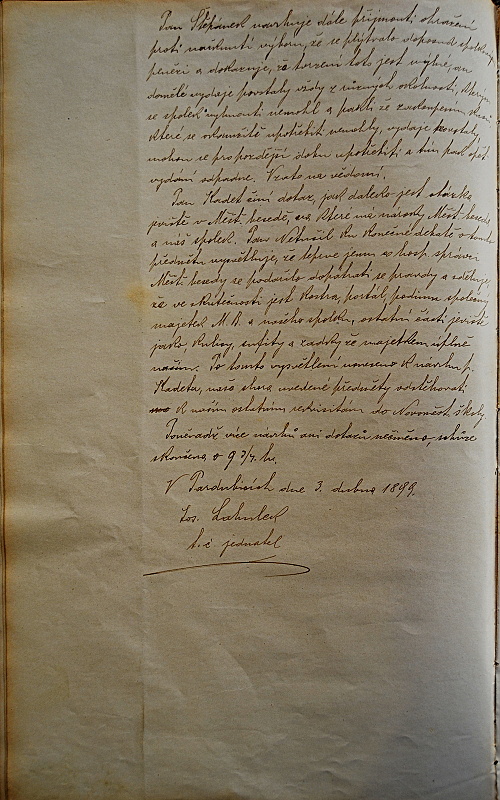 Pan Štěpánek navrhuje dále přijmouti ohražení
proti nařknutí výboru, že se plýtvalo doposud spolkovými
penězi a dokazuje, že tvrzení toto jest mylné, an
domělé výdaje povstaly vždy z různých okolností, kterým
se spolek vyhnouti nemohl a pakli že zakoupením věcí
které se okamžitě upotřebiti nemohly, výdaje povstaly,
mohou se pro pozdější dobu upotřebiti a tím pak opět
vydání odpadne. Vzato na vědomí.
Pan Hadek činí dotaz, jak daleko jest otázka
jeviště v Měšť. besedě, na které má nároky Měšť. beseda
a náš spolek. Pan Netušil ku konečné debatě o tomto
předmětu vysvětluje, že teprve jemu co hosp. správci
Měšť. besedy se podařilo dopátrati se pravdy a sděluje,
že ve skutečnosti jest kostra, portál, podium společný
majetek M. B. a našeho spolku, ostatní části jeviště
jako kulisy, sufity a zadky že majetkem úplně
naším. Po tomto vysvětlení usneseno k návrhu p.
Hadeka, naše shora uvedené předměty odstěhovati
k našim ostatním rekvisitám do Novoměst. školy.
Poněvadž více návrhů ani dotazů nečiněno, schůze
skončena o 9 3/4 h.
V Pardubicích dne 3. dubna 1899.
Jos.
t. č. jednatel